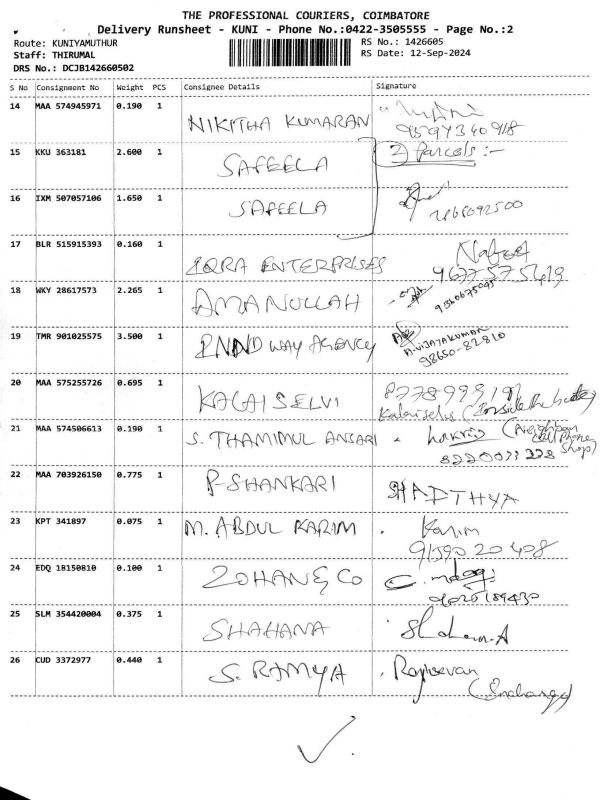 THE PROFESSIONAL COURIERS, COIMBATORE
Delivery Runsheet - KUNI - Phone No.:0422-3505555 - Page No.:2
Route: KUNIYAMUTHUR
RS No.: 1426605
Staff: THIRUMAL
RS Date: 12-Sep-2024
DRS No.: DCJB142660502
S No Consignment No Weight PCS Consignee Details Signature
14 MAA 574945971 0.190 1 NIKITHA KUMARAN
15 KKU 363181 2.600 1 SAFEELA 2) Parcels :-
16 IXM 507057106 1.650 1 SAFEELA
17 BLR 515915393 0.160 1 IQRA ENTERPRISES
9677575419
18 WKY 28617573 2.265 1 AMANULLAH
19 TMR 901025575 3.500 1 WAY AGENCY A.VIJAYAKUMAR
98650-82810
20 MAA 575255726 0.695 1 KALAISELVI
Kalaiselvi
21 MAA 574506613 0.190 1 S. THAMIMUL ANSARI (Neighbour
Cell Phone
Shop)
22 MAA 703926150 0.775 1 P-SHANKARI
23 KPT 341897 0.075 1 M. ABDUL KARIM Karim
91590 20408
24 EDQ 18150810 0.100 1 ZOHAN & CO
25 SLM 354420004 0.375 1 SHAHANA
26 CUD 3372977 0.440 1 S. RAMYA